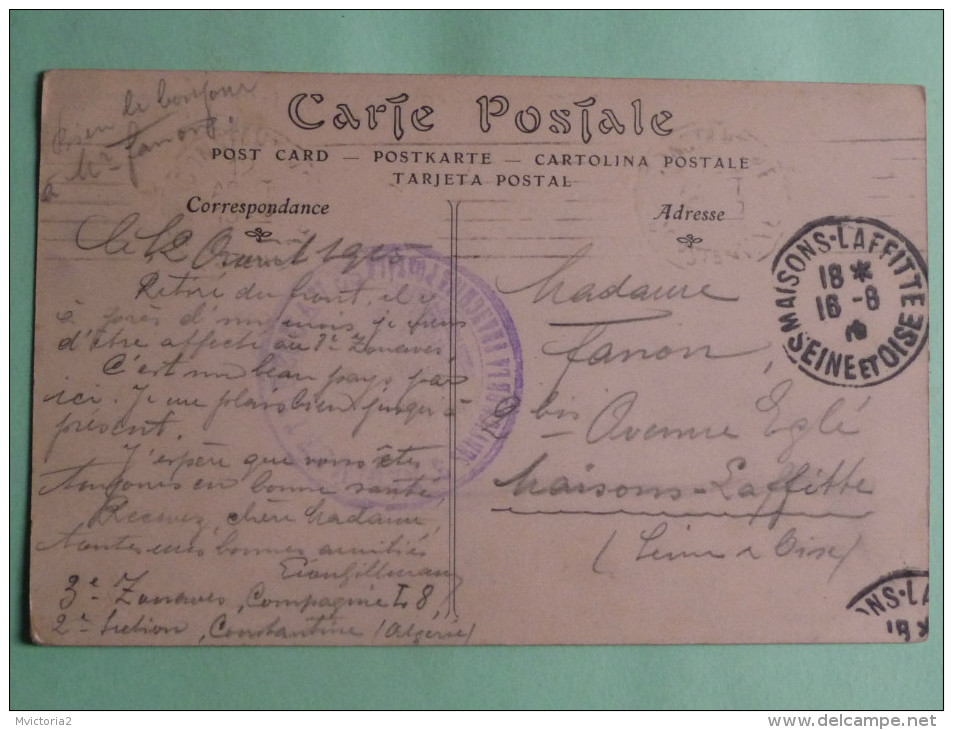 Bien le bonjour
à Mr Fanon.
Carte Postale
POST CARD — POSTKARTE — CARTOLINA POSTALE
TARJETA POSTAL
Correspondance
Le 12
Retiré du front, il y
à près d'un mois, je viens
d'être affecté au 3e Zouaves
C'est un beau pays par
ici. Je me plais bien jusqu'à
présent.
J'espère que vous êtes
toujours en bonne santé
Recevez, chère Madame,
toutes mes bonnes amitiés
3e Zouaves, Compagnie L8,
2e Section, Constantine (Algérie)
Adresse
Madame
Fanon,
9 bis Avenue Eglé
Maisons-Laffitte
(Seine et Oise)
MAISONS-LAFFITTE
18 *
16 -8
SEINE ET OISE
NS-LA
18 *
Mvictoria2
http://www.delcampe.net